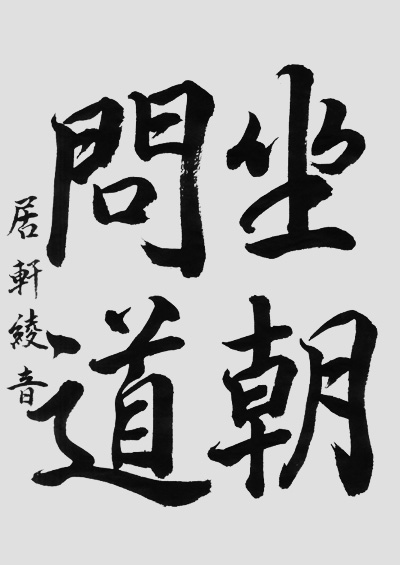 坐朝
問道
居軒綾音